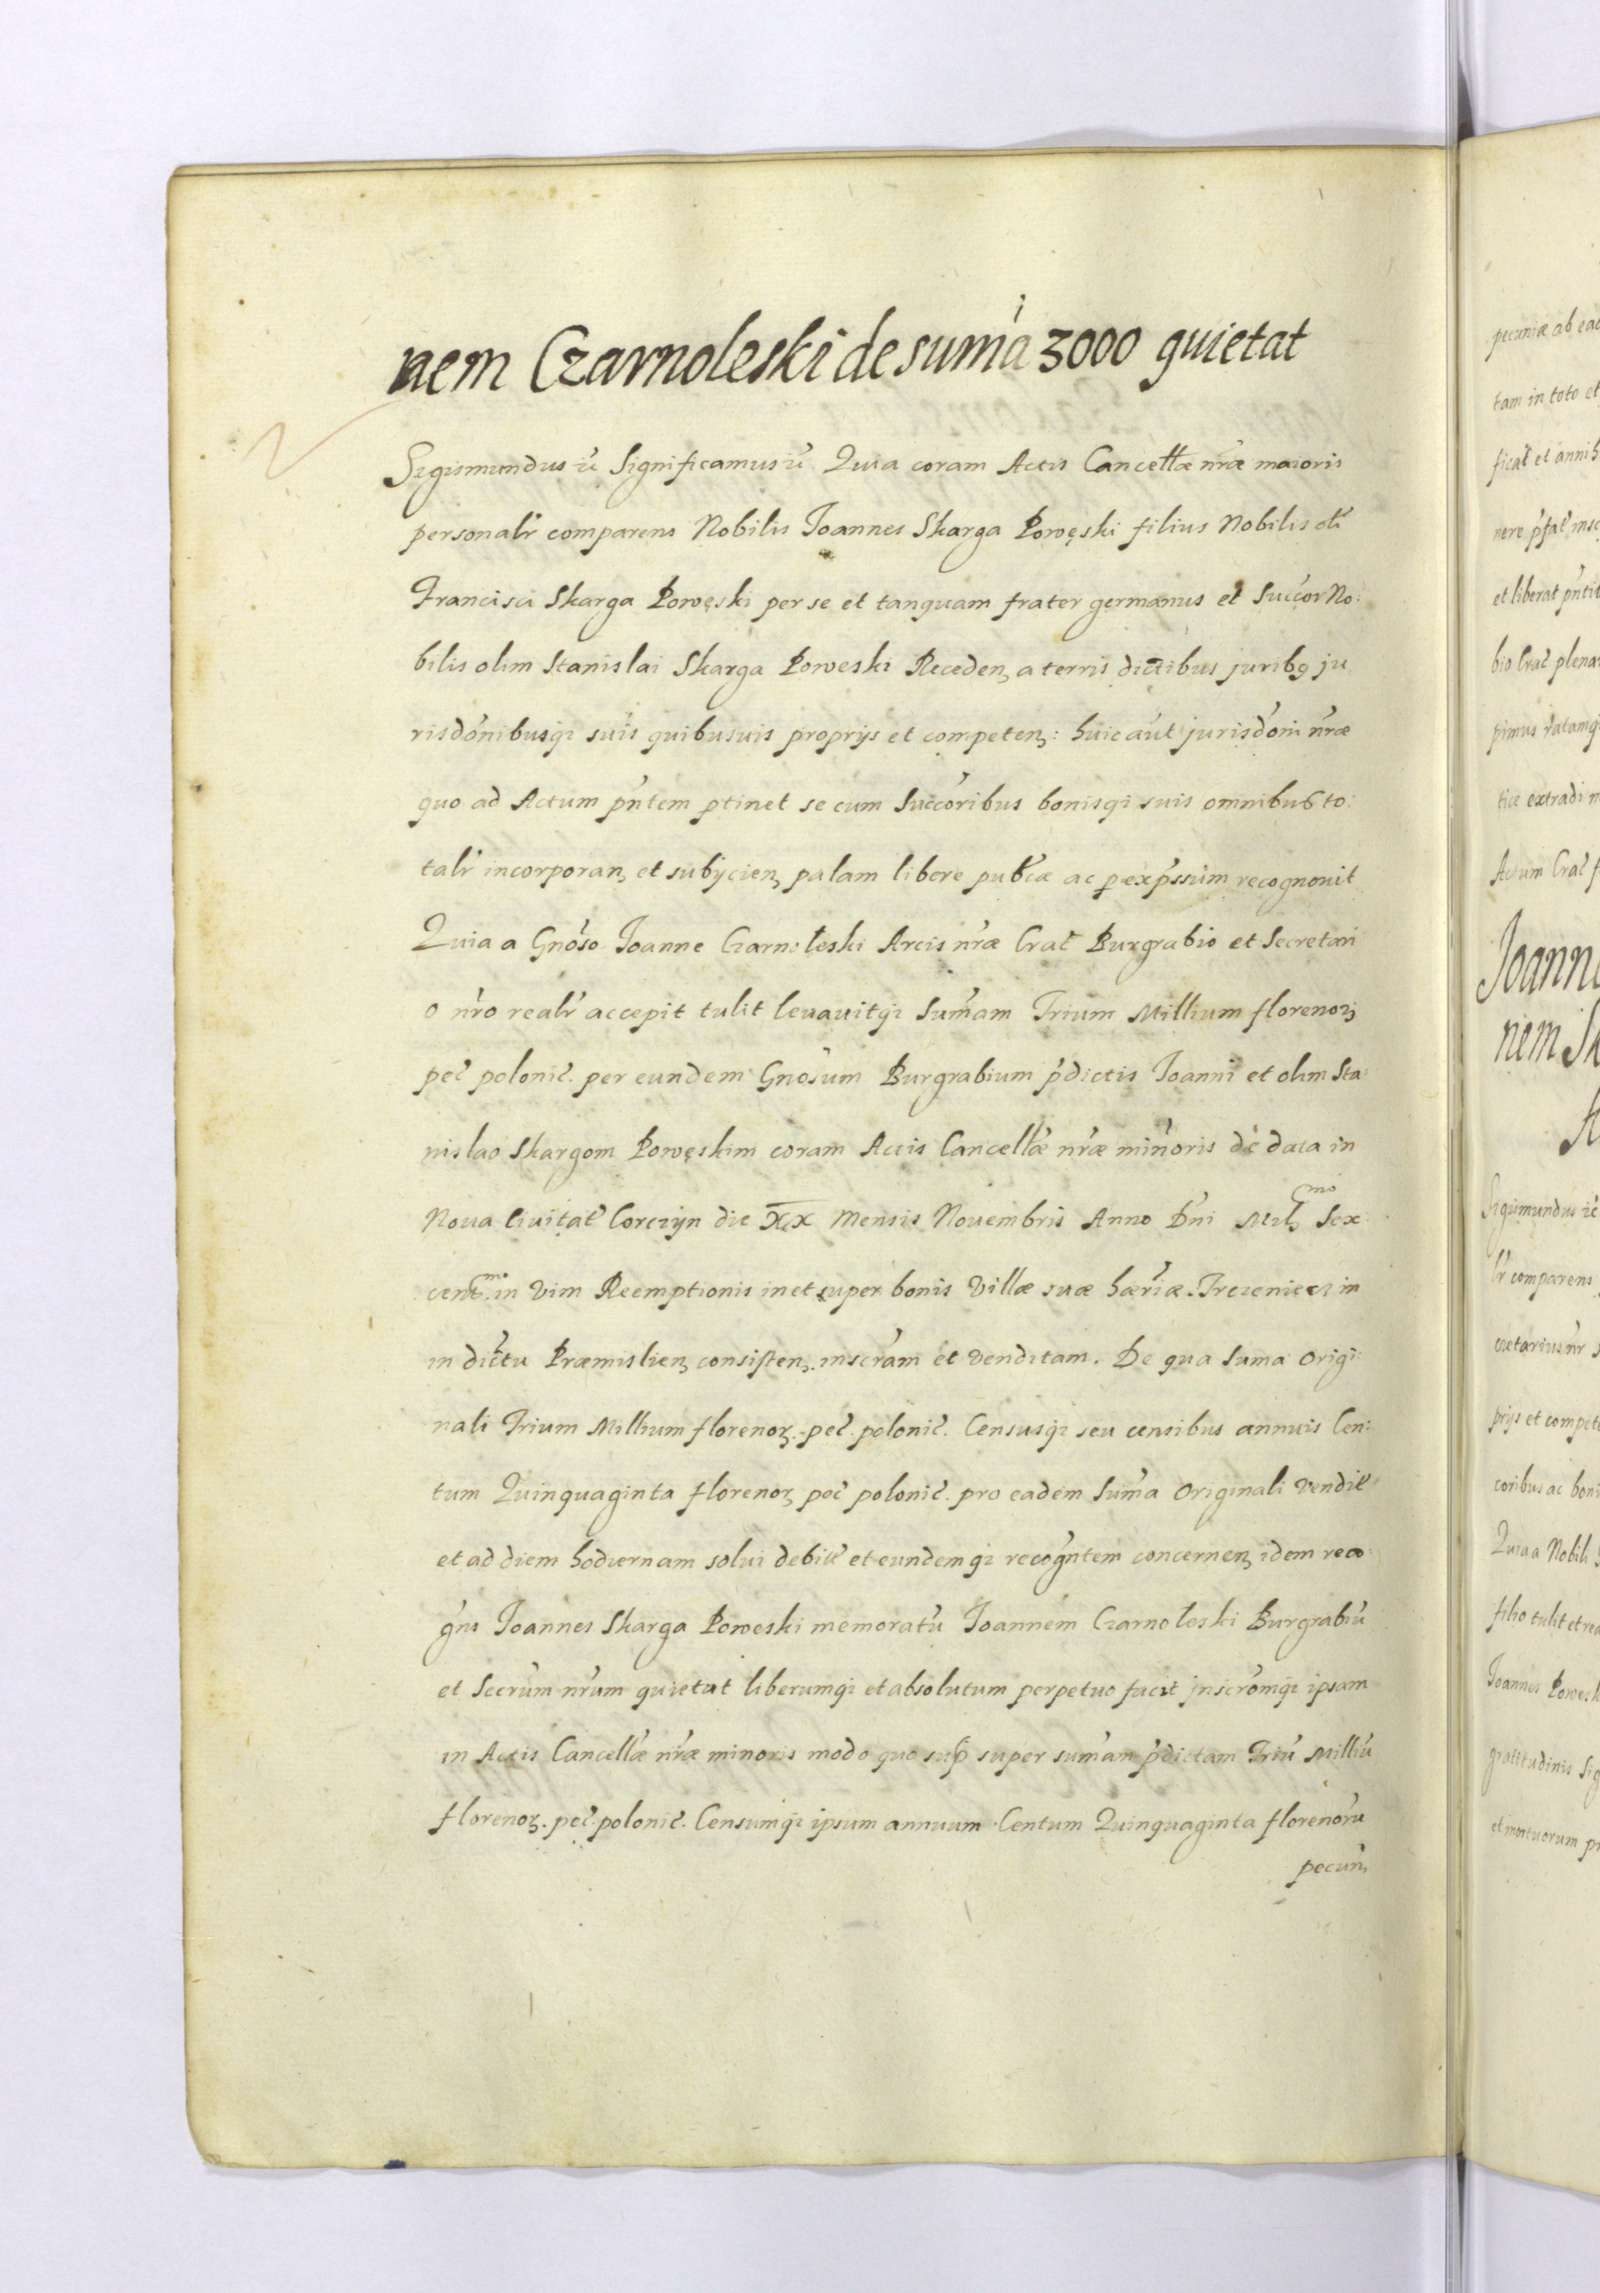 nem Czarnoleski de sum̃a 3000 quietat
Sigismundus ić Significamus ić Quia coram Actis Cancellæ nr̃æ maioris
personalr̃ comparens Nobilis Joannes Skarga Powęski filius Nobilis oli
Francisci Skarga Powęski per se et tanquam frater germanus et Succor No:
bilis olim Stanislai Skarga Poweski Receden, a terris dictibus juribꝫ ju
risdõnibusqȝ suis quibusuis proprijs et competen,: huic aut̃ jurisdõni nr̃æ
quo ad Actum pñtem ptinet se cum Succoribus bonisqȝ suis omnibus to:
talr̃ incorporan, et subijcien, palam libere publ̃cæ ac p exp̃ssum recognouit
Quia a Gnõso Joanne Czarnoleski Arcis nr̃æ Crac̃ Burgrabio et Secretari
o nr̃o realr̃ accepit tulit leuauitqȝ Sum̃am Trium Millium florenoꝝ
pec̃ polonic̃. per eundem Gnõsum Burgrabium p̃dictis Joanni et olim Sta:
nislao Skargom Powęskim coram Actis Cancellæ nr̃æ minoris de data in
Noua Ciuitat̃ Corczyn die XX Mensis Nouembris Anno Dñi Mill,mo Sex
cent.mo in vim Reemptionis in et super bonis Villæ suæ hær̃iæ Trczeniecz in
in dic̃tu Præmislien, consisten, inscr̃am et venditam. De qua Suma Origi:
nali Trium Millium florenoꝝ. pec̃. polonic̃. Censusqȝ seu censibus annuis Cen:
tum Quinquaginta florenoꝝ pec̃ polonic̃. pro eadem Sum̃a Originali vendit̃
et ad diem hodiernam solui debit̃ et eundemqȝ recogñtem concernen, idem reco:
gñs Joannes Skarga Poweski memoratũ Joannem Czarnoleski Burgrabiũ
et Secr̃um nr̃um quietat liberumqȝ et absolutum perpetuo facit jnscr̃omqȝ ipsam
in Actis Cancellæ nr̃æ minoris modo quo sup̃ super sum̃am p̃dictam Triũ Milliũ
florenoꝝ. pec̃. polonic̃. Censumqȝ ipsum annuum Centum Quinquaginta florenorũ
pecun,
pecuniæ ab ead
tam in toto et
ficat̃ et annih
nere p̃fat̃ insc
et liberat pñtiu
bio Crac̃ plenar
pimus ratamq
tiæ extradi m
Actum Crac̃ f
Joanne
nem Sk
Sigismundus ić
lr̃ comparens
cretarius nr̃ s
prijs et compete
coribus ac boni
Quia a Nobili
filio tulit et rea
Joannes Powesk
gratitudinis Sig
et mortuorum pr